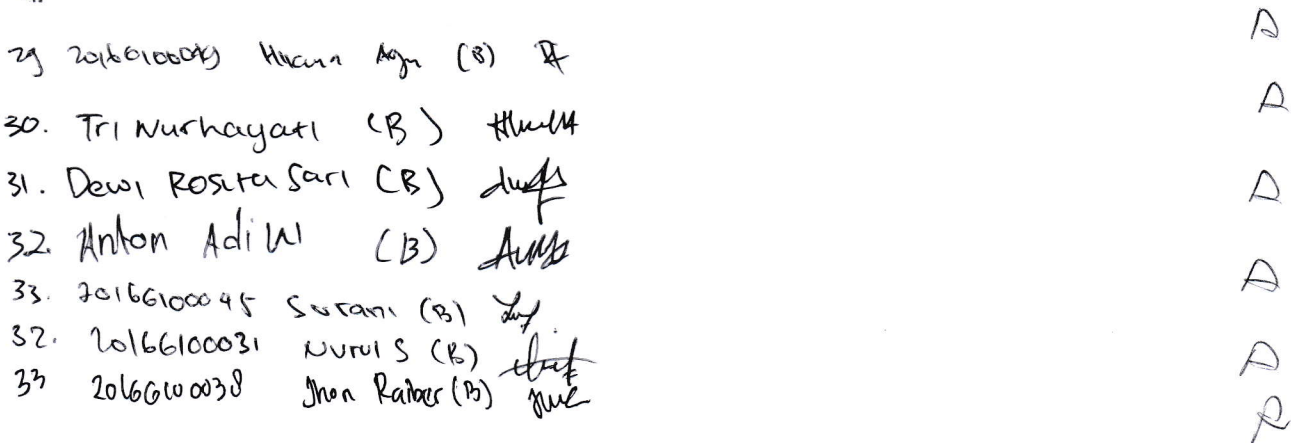 29 20166100049 Agn (B)
30. Tri Nurhayati (B)
31. Dewi Rosita Sari (B)
32. Anton Adi W (B)
33. 20166100045 Surani (B)
32. 20166100031 Nurul S (B)
33 20166100038 Jhon Raiber (B)
A
A
A
A
A
A